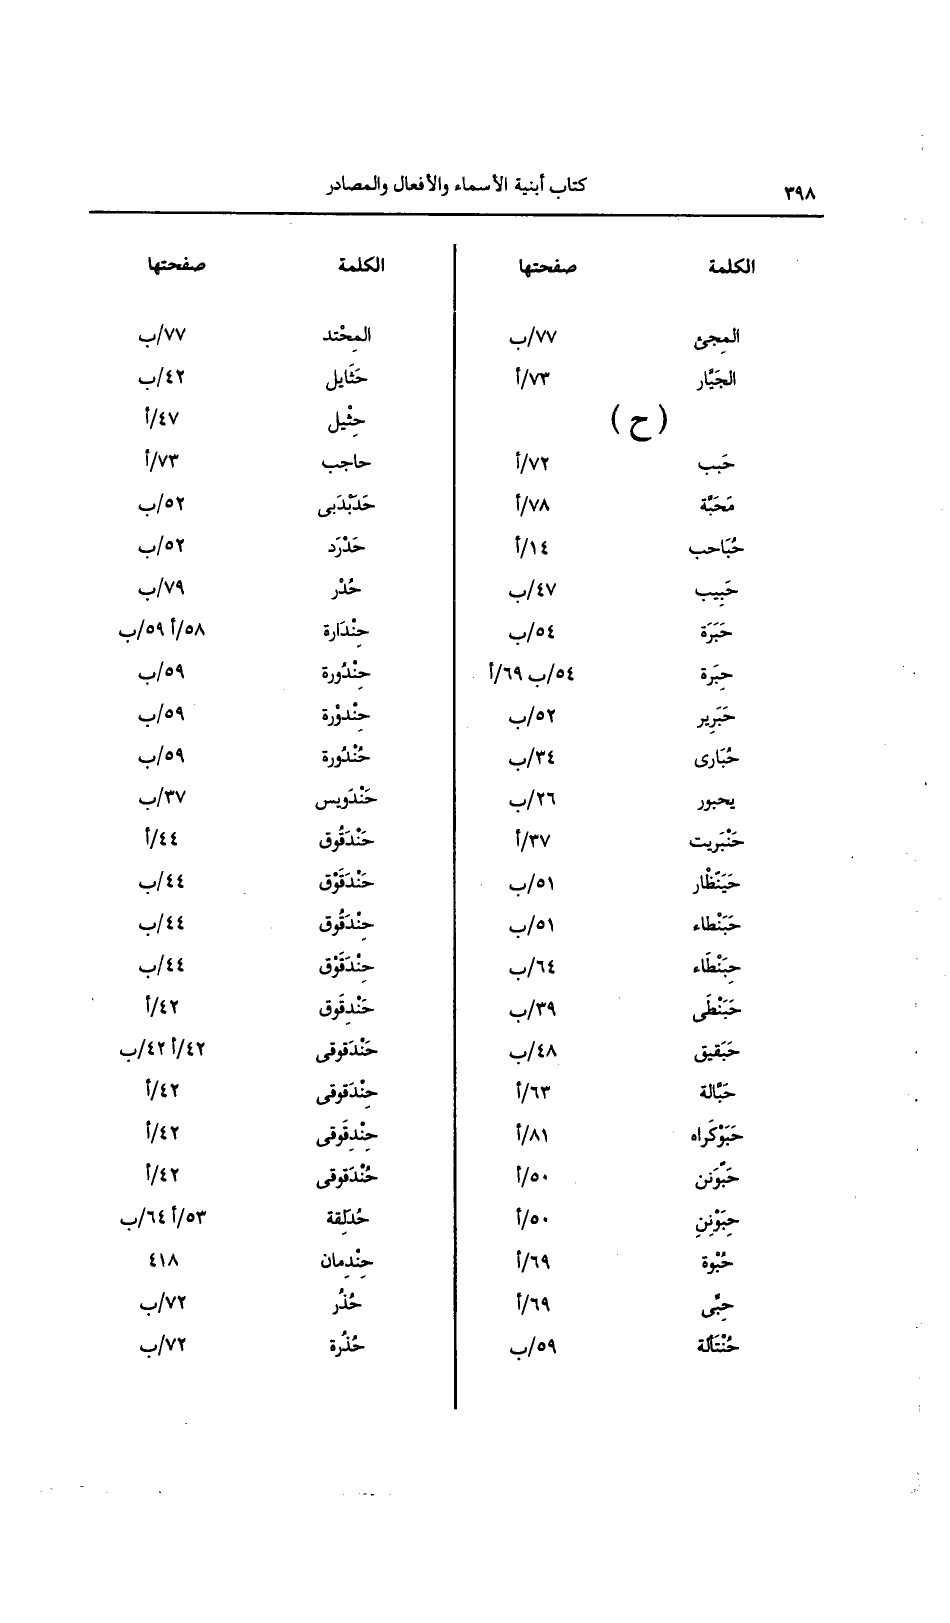 ٣٩٨
كتاب أبنية الأسماء والأفعال والمصادر
الكلمة صفحتها
المجئ ٧٧/ب
الجَيَّار ٧٣/أ
(ح)
حَبب ٧٢/أ
مَحَبَّة ٧٨/أ
حُبَاحب ١٤/أ
حَبِيب ٤٧/ب
حَبَرَة ٥٤/ب
حِبَرة ٥٤/ب ٦٩/أ
حَبَرِير ٥٢/ب
حُبَارى ٣٤/ب
يحبور ٢٦/ب
حَنْبَريت ٣٧/أ
حَبَنْطاء ٥١/ب
حِبَنْطَاء ٦٤/ب
حَبَنْطَى ٣٩/ب
حَبَقيق ٤٨/ب
حَبَّالة ٦٣/أ
حَبَوْكَراه ٨١/أ
حَبَّوَنن ٥٠/أ
حِبَوْنِنِ ٥٠/أ
حُبْوة ٦٩/أ
حِبَّى ٦٩/أ
حُنْتَألة ٥٩/ب
الكلمة صفحتها
المِحْتد ٧٧/ب
حَثَايل ٤٢/ب
حِثْيل ٤٧/أ
حاجب ٧٣/أ
حَدَبْدَبى ٥٢/ب
حَدْرَد ٥٢/ب
حُدْر ٧٩/ب
حِنْدَارة ٥٨/أ ٥٩/ب
حِنْدُورة ٥٩/ب
حِنْدوْرة ٥٩/ب
حُنْدُورة ٥٩/ب
حَنْدَويس ٣٧/ب
حَنْدَقُوق ٤٤/أ
حَنْدَقَوْق ٤٤/ب
حِنْدَقُوق ٤٤/ب
حِنْدَقَوْق ٤٤/ب
حَنْدِقَوق ٤٢/أ
حَنْدَقوقى ٤٢/أ ٤٢/ب
حِنْدَقوقى ٤٢/أ
حِنْدِقَوقى ٤٢/أ
حُنْدَقوقى ٤٢/أ
حُدَلِقة ٥٣/أ ٦٤/ب
حِنْدِمان ٤١٨
حُذُر ٧٢/ب
حُذُرة ٧٢/ب